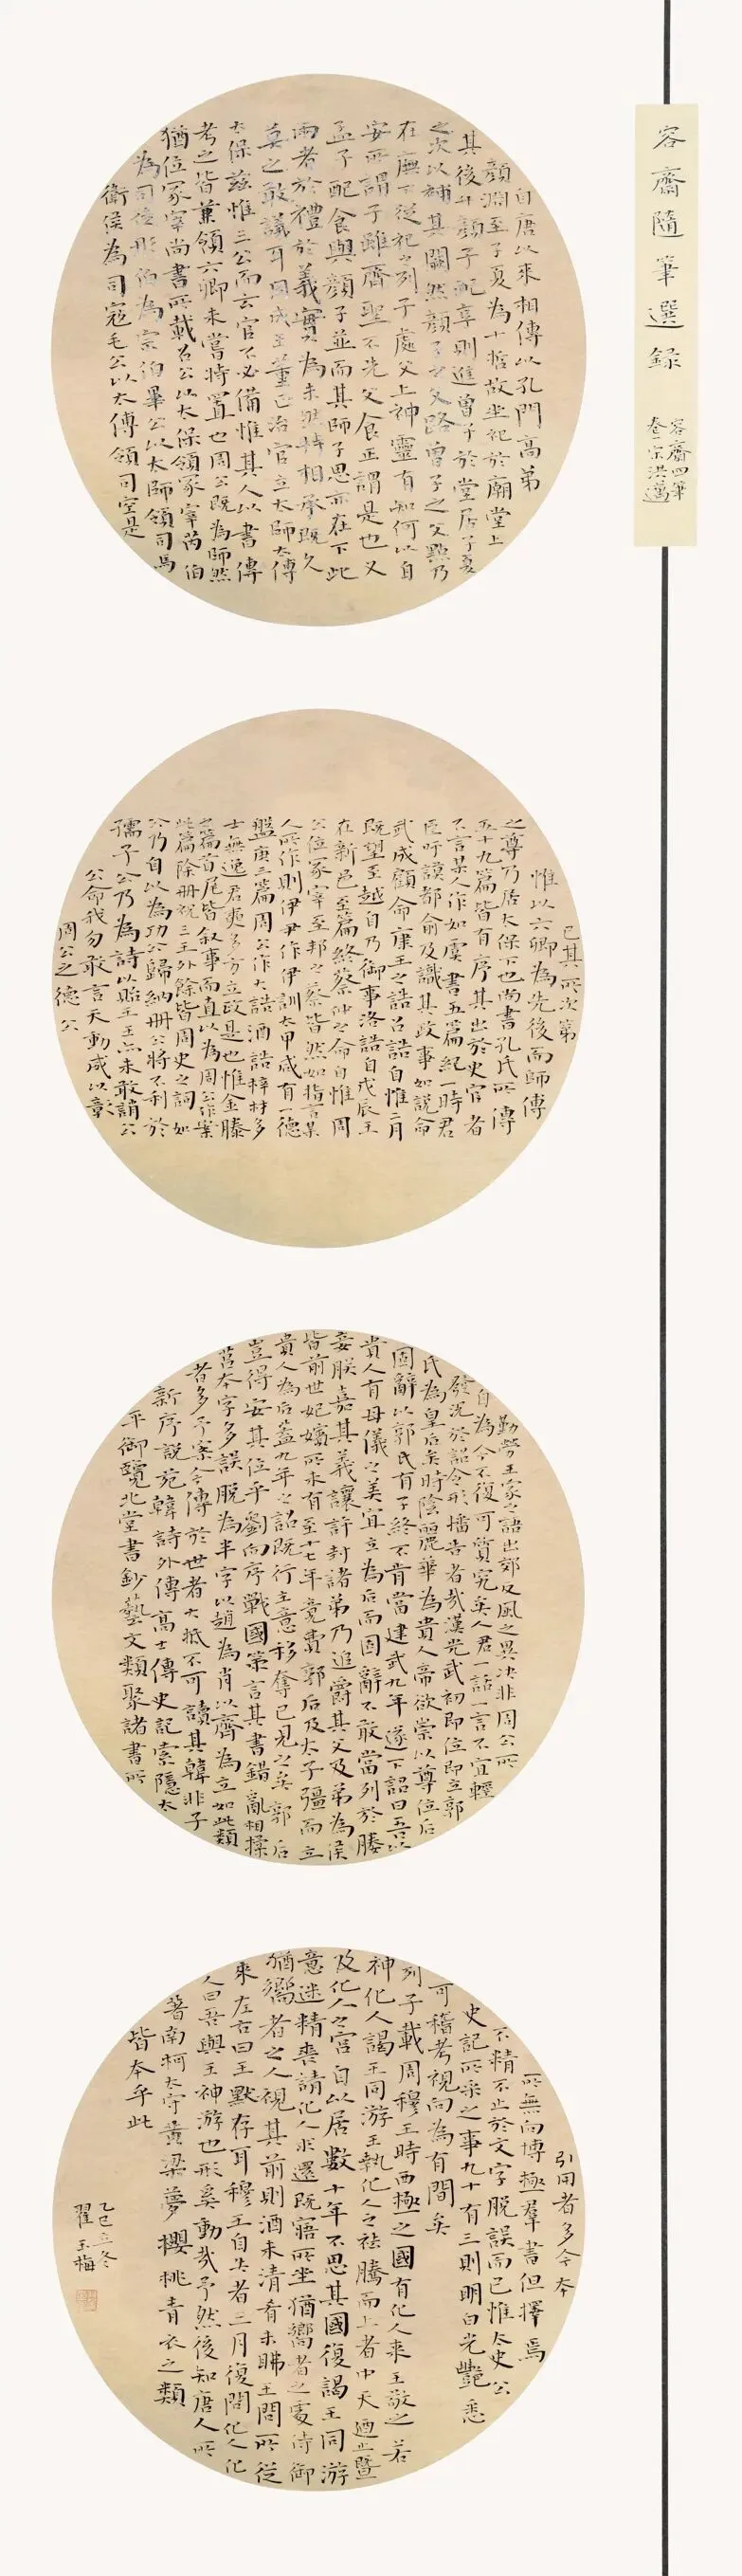 容齋隨筆選録
容齋四筆
卷一宋洪邁
自唐以來相傳以孔門高弟
顏淵至子夏為十哲故坐祀於廟堂上
其後升顏子配享則進曾子於堂居子夏
之次以補其闕然顏子之父路曾子之父點乃
在廡下從祀之列子處父上神靈有知何以自
安所謂子雖齊聖不先父食正謂是也又
孟子配食與顏子並而其師子思亦在下此
兩者於禮於義實為未然特相承既久
莫之敢議耳周成王董正治官立太師太傅
太保茲惟三公而云官不必備惟其人以書傳
考之皆兼領六卿未嘗特置也周公既為師然
猶位冢宰尚書所載召公以太保領冢宰芮伯
為司徒彤伯為宗伯畢公以太師領司馬
衛侯為司寇毛公以太傅領司空是
已其所次第
惟以六卿為先後而師傅
之尊乃居太保下也尚書孔氏所傳
五十九篇皆有序其出於史官者
不言某人作如虞書五篇紀一時君
臣吁謨都俞及識其政事如說命
武成顧命康王之誥召誥自惟二月
既望至越自乃御事洛誥自戊辰王
在新邑至篇終蔡仲之命自惟周
公位冢宰至邦之蔡皆然如指言某
人所作則伊尹作伊訓太甲咸有一德
盤庚三篇周公作大誥酒誥梓材多
士無逸君奭多方立政是也惟金縢
之篇首尾皆叙事而直以為周公作案
此篇除冊祝三王外餘皆周史之詞如
公乃自以為功公歸納冊公將不利於
孺子公乃為詩以貽王王亦未敢誚公
公命我勿敢言天動威以彰
周公之德公
勤勞王家之語出郊反風之異決非周公所
自為今不復可質究矣人君一話一言不宜輕
發況於詔令形播告者哉漢光武初即位即立郭
氏為皇后矣時陰麗華為貴人帝欲崇以尊位后
固辭以郭氏有子終不肯當建武九年遂下詔曰吾以
貴人有母儀之美宜立為后而固辭不敢當列於媵
妾朕嘉其義讓許封諸弟乃追爵其父及弟為侯
皆前世妃嬪所未有至十七年竟廢郭后及太子彊而立
貴人為后蓋九年之詔既行主意移奪已見之矣郭后
豈得安其位乎劉向序戰國策言其書錯亂相揉
莒本字多誤脫為半字以趙為肖以齊為立如此類
者多予案今傳於世者大抵不可讀其韓非子
新序說苑韓詩外傳高士傳史記索隱太
平御覽北堂書鈔藝文類聚諸書所
引用者多今本
所無向博極羣書但擇焉
不精不止於文字脫誤而已惟太史公
史記所采之事九十有三則明白光艷悉
可稽考視向為有間矣
列子載周穆王時西極之國有化人來王敬之若
神化人謁王同游王執化人之祛騰而上者中天迺止暨
及化人之宫自以居數十年不思其國復謁王同游
意迷精喪請化人求還既寤所坐猶嚮者之處侍御
猶嚮者之人視其前則酒未清肴未昲王問所從
來左右曰王默存耳穆王自失者三月復問化人化
人曰吾與王神游也形奚動哉予然後知唐人所
著南柯太守黄梁夢櫻桃青衣之類
皆本乎此
乙巳立冬
翟玉梅